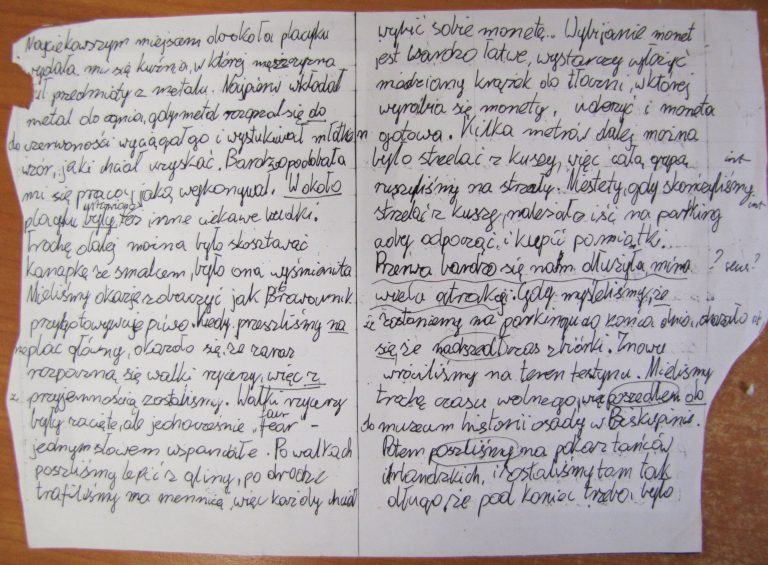 Najciekawszym miejscem dookoła placyku
wydała mi się kuźnia, w której mężczyzna
ł przedmioty z metalu. Najpierw wkładał
metal do ognia, gdy metal rozgrzał się do
do czerwoności wyciągał go i wystukiwał młotkiem
wzór, jaki chciał uzyskać. Bardzo podobała
mi się praca, jaką wykonywał. W około
placyku były też inne ciekawe budki.
Trochę dalej można było skosztować
kanapkę ze smalcem, było ona wyśmienita.
Mieliśmy okazję zobaczyć jak Browarnik
przygotowywuje piwo. Kiedy przeszliśmy na
na plac główny, okazało się że zaraz
rozpoczną się walki rycerzy, więc z
z przyjemnością zostaliśmy. Walki rycerzy
były zacięte, ale jednocześnie, fair fear -
jednym słowem wspaniałe. Po walkach
poszliśmy lepić z gliny, po drodze
trafiliśmy na mennicę, więc każdy chciał
wybić sobie monetę. Wybijanie monet
jest bardzo łatwe, wystarczy wyłożyć
miedziany krążek do tłoczni, w której
wyrabia się monety, uderzyć i moneta
gotowa. Kilka metrów dalej można
było strzelać z kuszy, więc całą grupą int
ruszyliśmy na strzały. Niestety, gdy skończyliśmy
strzelać z kuszy, należało iść na parking int
aby odpocząć, i kupić pamiątki.
Przerwa bardzo się nam dłużyła mimo ? sens?
wielu atrakcji. Gdy myśleliśmy, że
że zostaniemy na parkingu do końca dnia, okazało
się że nadszedł czas zbiórki. Znowu
wróciliśmy na teren festynu. Mieliśmy
trochę czasu wolnego, więc poszedłem do
do muzeum historii osady w Biskupinie.
Potem poszliśmy na pokaz tańców
irlandzkich, i zostaliśmy tam tak
długo, że pod koniec trzeba było